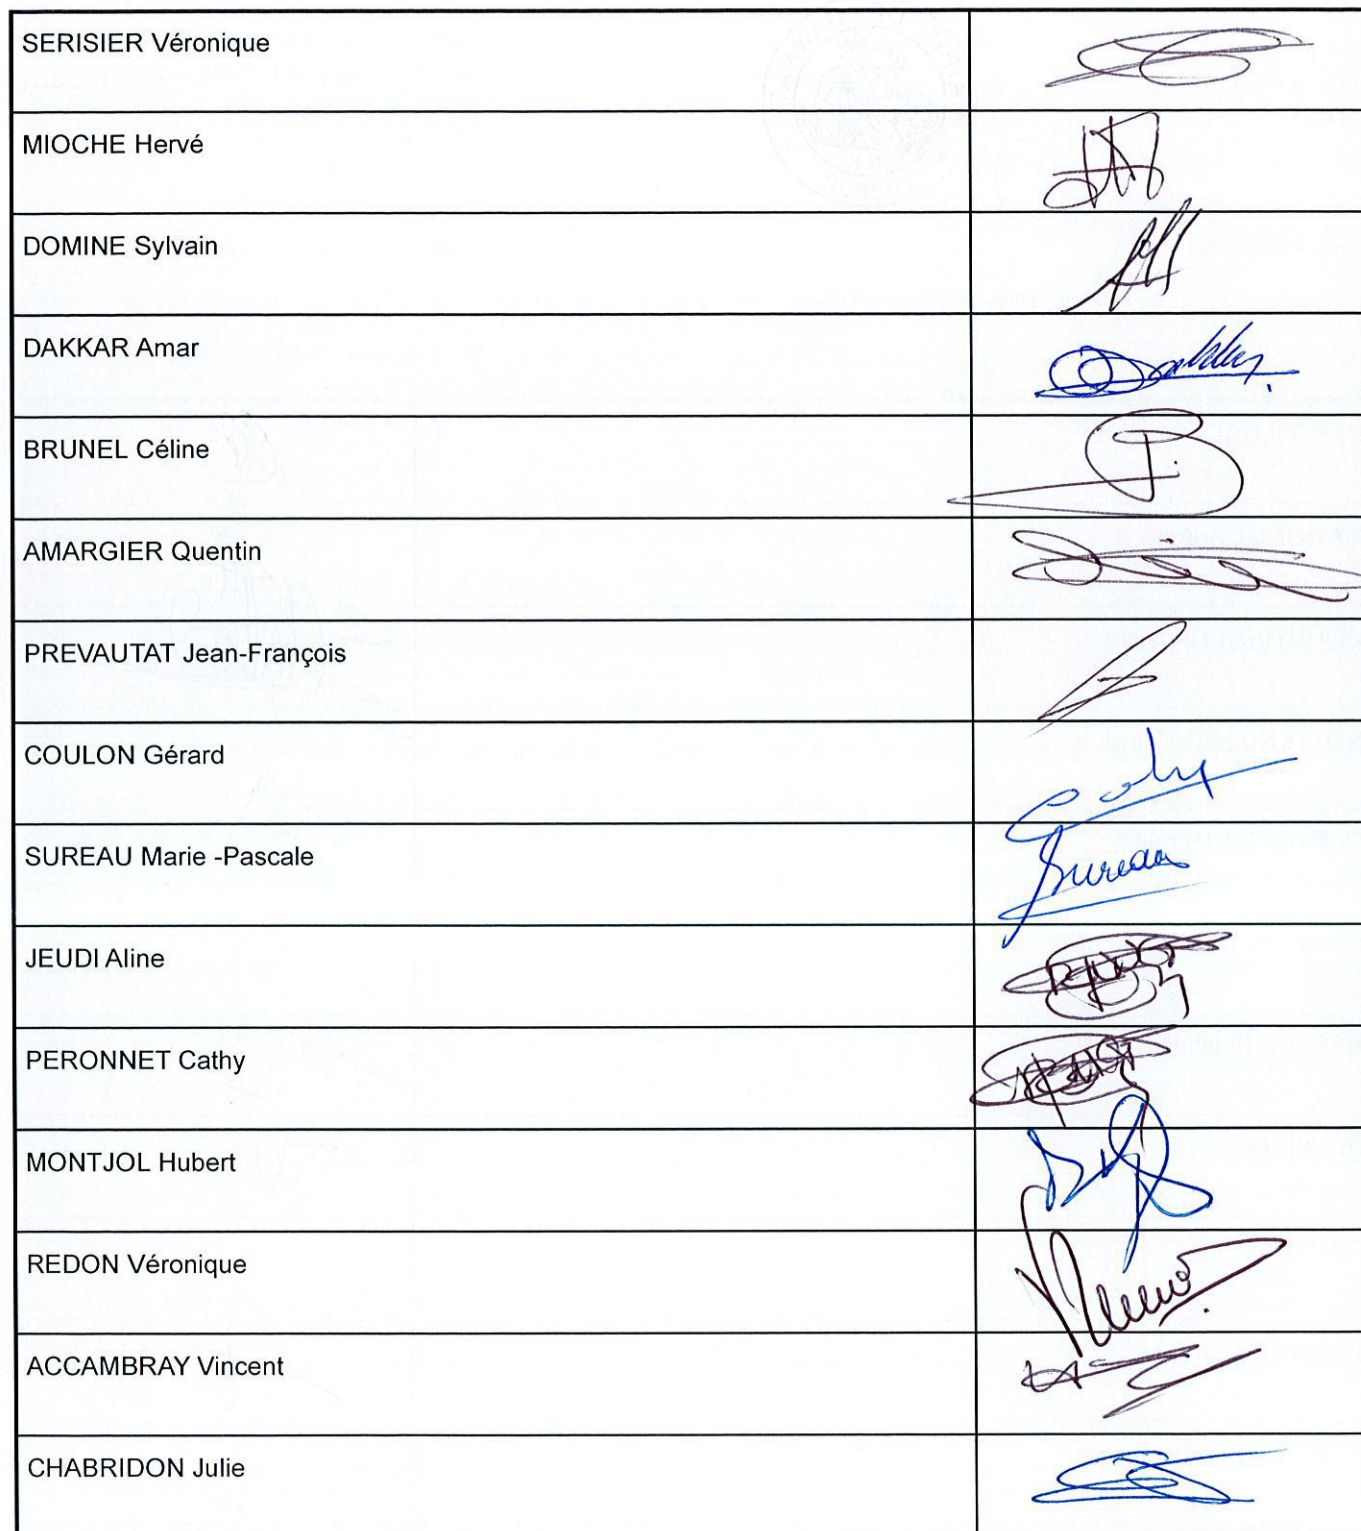 SERISIER Véronique
MIOCHE Hervé
DOMINE Sylvain
DAKKAR Amar
BRUNEL Céline
AMARGIER Quentin
PREVAUTAT Jean-François
COULON Gérard
SUREAU Marie -Pascale
Sureau
JEUDI Aline
PERONNET Cathy
MONTJOL Hubert
REDON Véronique
ACCAMBRAY Vincent
CHABRIDON Julie